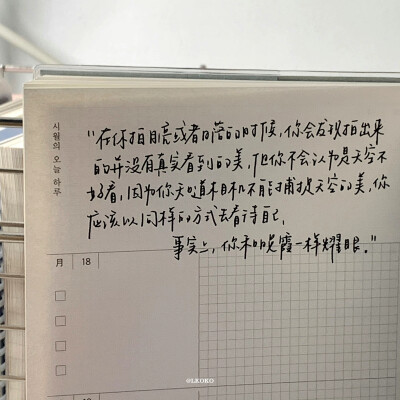 시월의 오늘 하루
"在你拍月亮或者日落的时候,你会发现拍出来
的并没有真实看到的美,但你不会认为是天空不
好看,因为你知道相机不能捕捉天空的美,你
应该以同样的方式去看待自己,
事实上,你和晚霞一样耀眼。"
月 18
@LEOKO